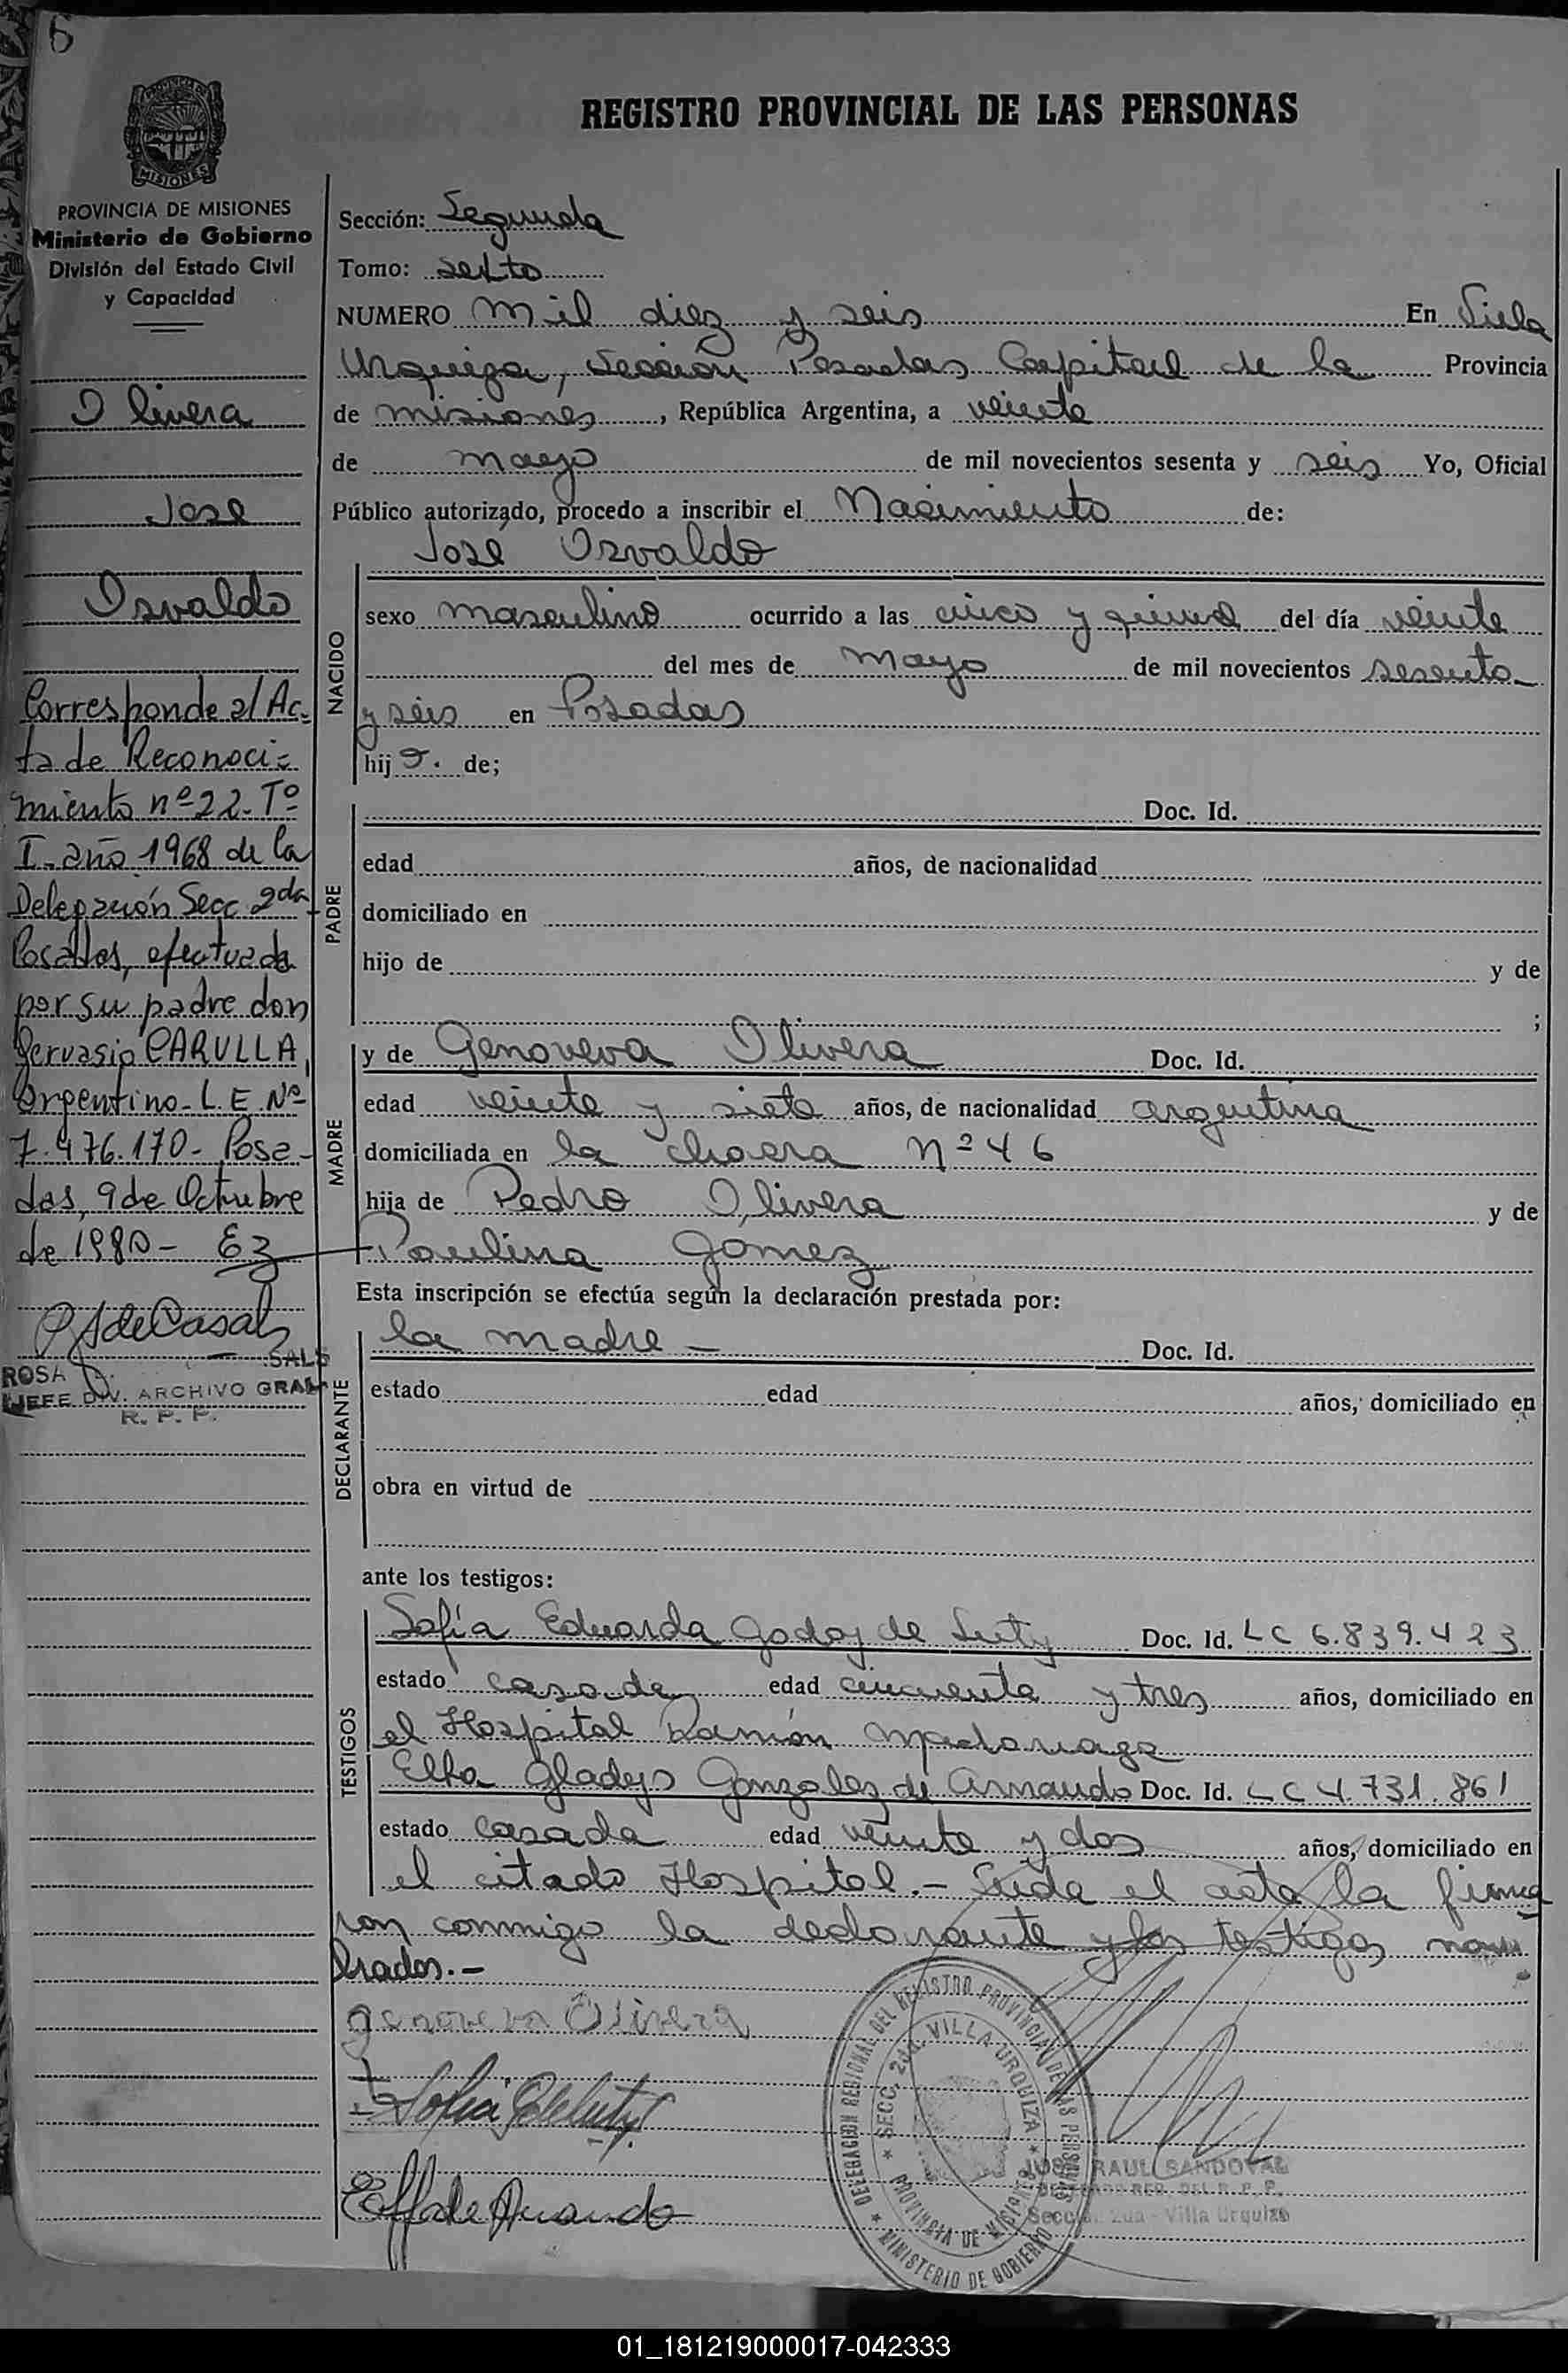 6
PROVINCIA DE MISIONES
Ministerio de Gobierno
División del Estado Civil
y Capacidad
Olivera
José
Osvaldo
Corresponde al Ac-
ta de Reconoci-
miento nº 22. Tº
I. año 1968 de la
Delegación Secc 2da
Posadas, efectuada
por su padre don
Gervasio CARULLA,
argentino - L.E. Nº
7.476.170 - Posa-
das, 9 de Octubre
de 1980 -
ROSA
JEFE DIV. ARCHIVO GRAL
R. P. P.
REGISTRO PROVINCIAL DE LAS PERSONAS
Sección: Segunda
Tomo: sexto
NUMERO mil diez y seis En Villa
Urquiza, Sección Posadas Capital de la Provincia
de misiones, República Argentina, a veinte
de mayo de mil novecientos sesenta y seis Yo, Oficial
Público autorizado, procedo a inscribir el Nacimiento de:
José Osvaldo
NACIDO
sexo masculino ocurrido a las cinco y quince del día veinte
del mes de mayo de mil novecientos sesenta
y seis en Posadas
hijo. de;
PADRE
Doc. Id.
edad años, de nacionalidad
domiciliado en
hijo de y de
;
MADRE
y de Genoveva Olivera Doc. Id.
edad veinte y siete años, de nacionalidad argentina
domiciliada en la chacra nº 46
hija de Pedro Olivera y de
Paulina Gomez
Esta inscripción se efectúa según la declaración prestada por:
DECLARANTE
la madre - Doc. Id.
estado edad años, domiciliado en
obra en virtud de
ante los testigos:
TESTIGOS
Sofía Eduarda Godoy de Doc. Id. LC 6.839.423
estado casada edad cincuenta y tres años, domiciliado en
el Hospital Ramón Madariaga
Elba Gladys Gonzalez de Armando Doc. Id. LC 4.731.861
estado casada edad veinte y dos años, domiciliado en
el citado Hospital.- Leída el acta la firma
ron conmigo la declarante y los testigos nom
brados.-
Genoveva Olivera
DELEGACION REGIONAL DEL REGISTRO PROVINCIAL DE LAS PERSONAS
SECC. 2da. VILLA URQUIZA
PROVINCIA DE MISIONES
MINISTERIO DE GOBIERNO
JOSE RAUL SANDOVAL
DELEGADO REG. DEL R. P. P.
Sección 2da - Villa Urquiza
01_181219000017-042333